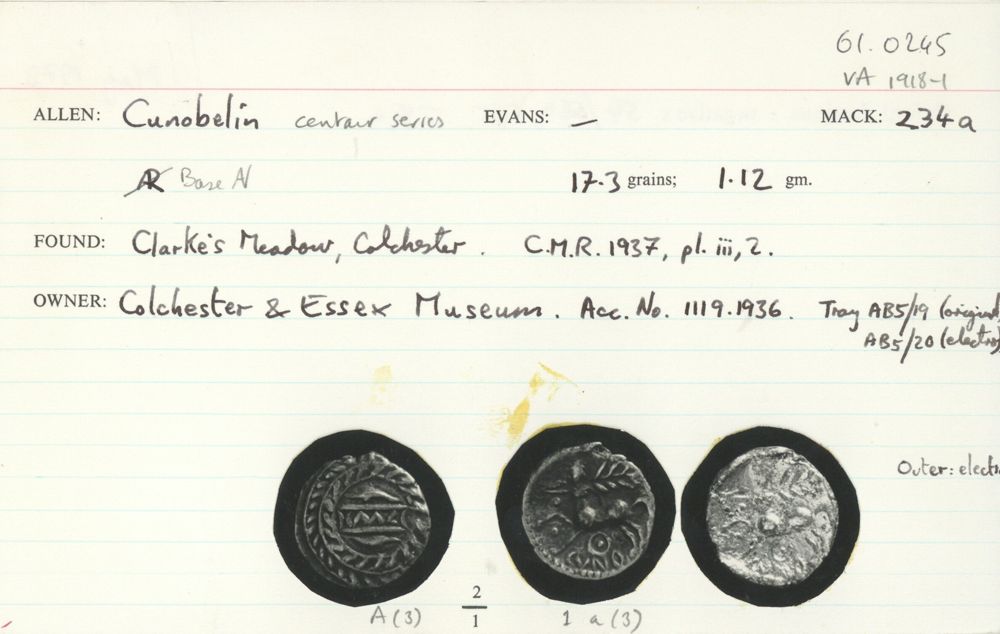 61.0245
VA 1918-1
ALLEN: Cunobelin centaur series EVANS: — MACK: 234a
AR Base N 17.3 grains; 1.12 gm.
FOUND: Clarke's Meadow, Colchester. C.M.R. 1937, pl. iii, 2.
OWNER: Colchester & Essex Museum. Acc. No. 1119.1936. Tray AB5/19 (original,
AB5/20 (electro)
Outer: electr
CAM
CVNO
A (3) 2/1 1 a (3)